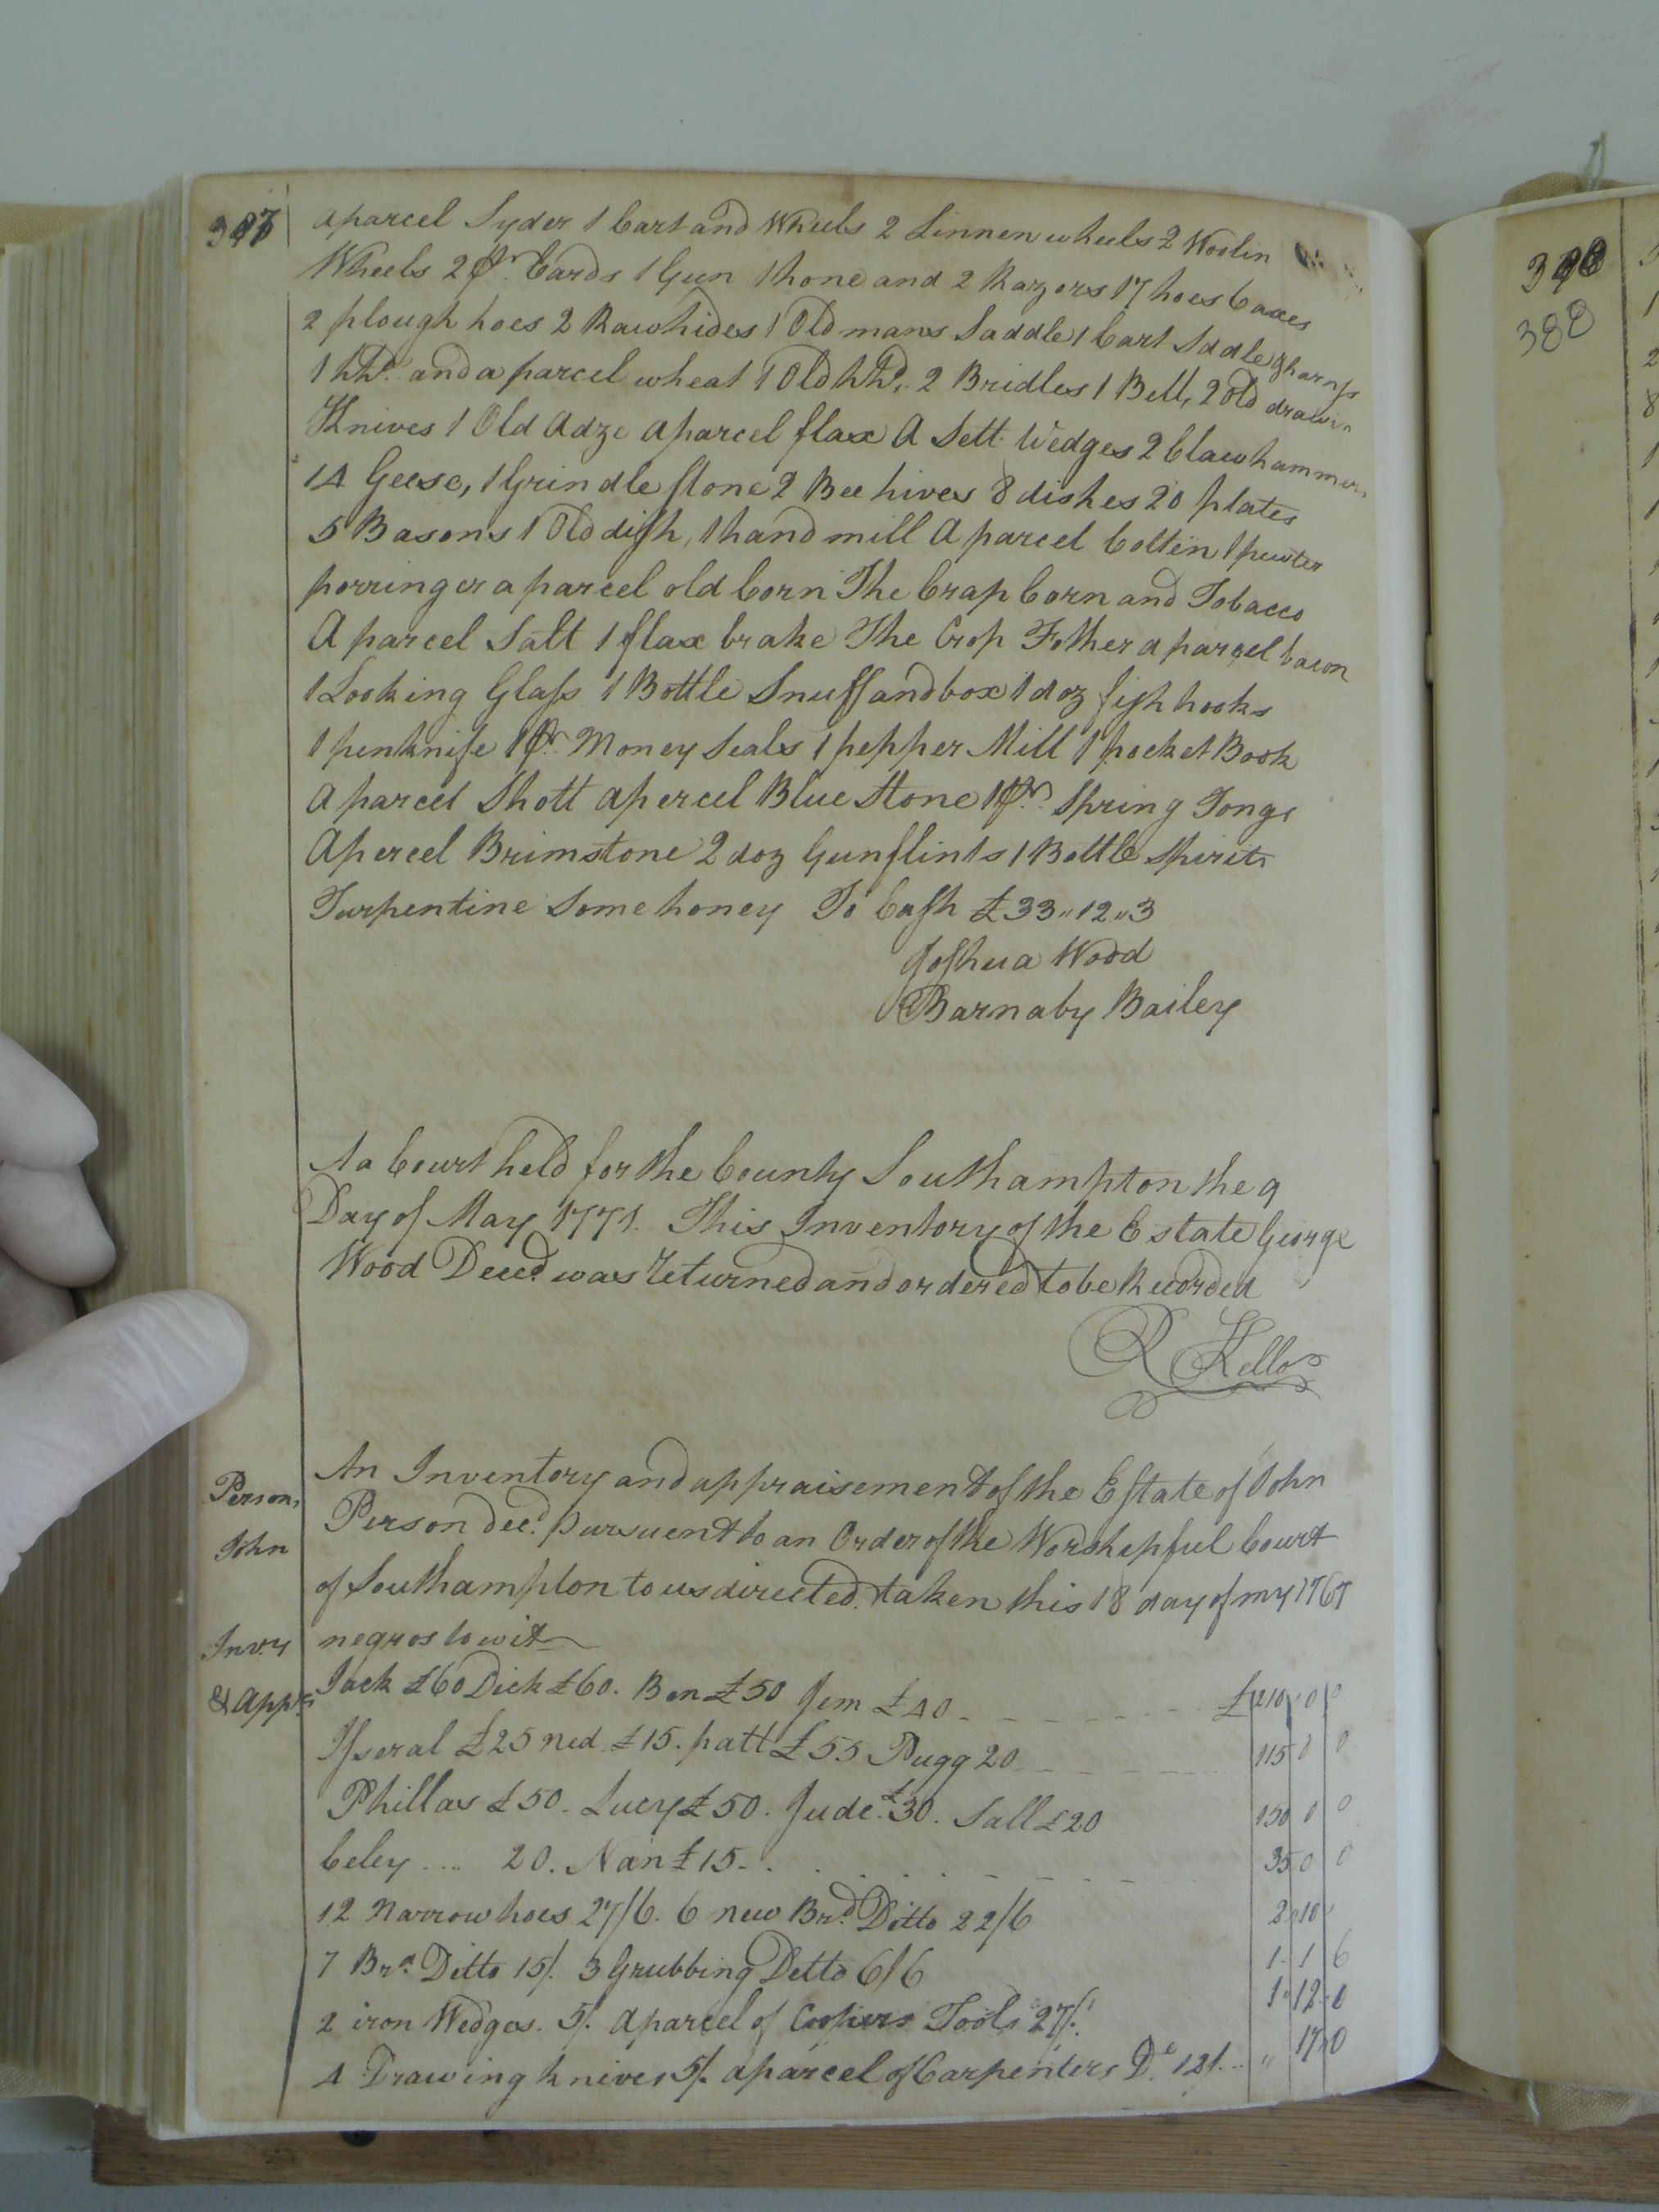 387
a parcel Syder 1 Cart and Wheels 2 Linnen wheels 2 Woolin
Wheels 2 pr. Cards 1 Gun 1 hone and 2 Razors 17 hoes 6 axes
2 plough hoes 2 Rawhides 1 Old mans Saddle 1 Cart Saddle & harness
1 hhd. and a parcel wheat 1 Old hhd. 2 Bridles 1 Bell, 2 Old drawin
Knives 1 Old Adze a parcel flax A Sett Wedges 2 Clawhammers
14 Geese, 1 Grindle stone 2 Bee hives 8 dishes 20 plates
5 Basons 1 Old dish, 1 hand mill A parcel Cotten 1 pewter
porringer a parcel old Corn The Crap Corn and Tobacco
A parcel Salt 1 flax brake The Crop Fother a parcel bacon
1 Looking Glass 1 Bottle Snuff and box 1 doz fish hooks
1 penknife 1 pr. Money Seals 1 pepper Mill 1 pocket Book
A parcel Shott apercel Blue Stone 1 pr. Spring Tongs
Apercel Brimstone 2 doz Gunflints 1 Bottle Spirits
Turpentine Some honey To Cash £33"12"3
Joshua Wood
Barnaby Bailey
At a Court held for the County Southampton the 9
Day of May 1771. This Inventory of the Estate George
Wood Deced. was returned and ordered to be Recorded
R Kello
Person,
John
Invy
& Apps
An Inventory and appraisement of the Estate of John
Person decd. pursuent to an Order of the Worshepful Court
of Southampton to us directed. taken this 18 day of my 1767
negros to wit
Jack £60 Dick £60. Ben £50 Jem £40 £210 0 0
Isseral £25 ned £15. patt £55 Pugg 20 115 0 0
Phillas £50. Lucy £50. Jude. £30. Sall £20 150 0 0
Celey .... 20. Nan £15 35 0 0
12 Narrow hoes 27/6. 6 new Brd. Ditto 22/6 2 10
7 Brd. Ditto 15/. 3 Grubbing Detto 6/6 1. 1 6
2 iron Wedges. 5/. A parcel of Coopers Tools 27/. 1 12 0
4 Drawing knives 5/. a parcel of Carpenters Do. 12/. " 17 0
390
388